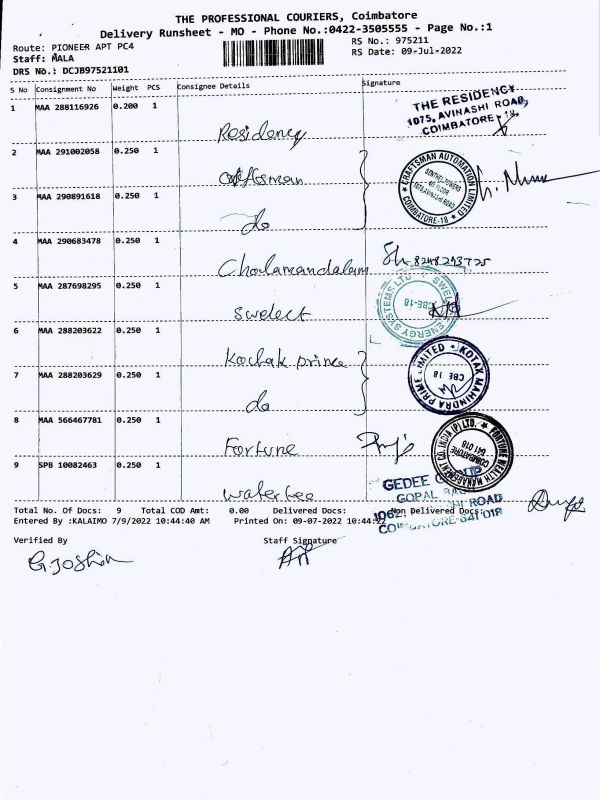 THE PROFESSIONAL COURIERS, Coimbatore
Delivery Runsheet - MO - Phone No.:0422-3505555 - Page No.:1
Route: PIONEER APT PC4
RS No.: 975211
Staff: MALA
RS Date: 09-Jul-2022
DRS No.: DCJB97521101
S No Consignment No Weight PCS Consignee Details Signature
1 MAA 288116926 0.200 1
THE RESIDENCY
1075, AVINASHI ROAD,
COIMBATORE
Residency
2 MAA 291002058 0.250 1
CRAFTSMAN AUTOMATION LIMITED
COIMBATORE-18
Craftsman
3 MAA 290891618 0.250 1
do
4 MAA 290683478 0.250 1
Cholamandalam
8248293725
5 MAA 287698295 0.250 1
ENERGY SYSTEMS LTD
CBE-18
Swelect
6 MAA 288203622 0.250 1
Kotak prime
KOTAK MAHINDRA PRIME LIMITED
CBE 18
7 MAA 288203629 0.250 1
do
8 MAA 566467781 0.250 1
Fortune
FORTUNE HEALTH MANAGEMENT CO. INDIA (P) LTD.
COIMBATORE
641 018
9 SPB 10082463 0.250 1
GEDEE
GOPAL
ROAD
1062,
COIMBATORE-641 018
Total No. Of Docs: 9 Total COD Amt: 0.00 Delivered Docs: Non Delivered Docs:
Entered By :KALAIMO 7/9/2022 10:44:40 AM Printed On: 09-07-2022 10:44:22
Verified By Staff Signature